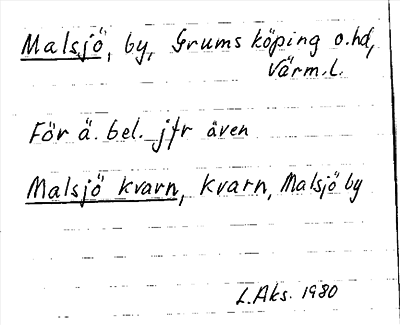 Malsjö, by, Grums köping o. hd,
Värm. l.
För ä. bel. jfr även
Malsjö kvarn, kvarn, Malsjö by
L. Aks. 1980